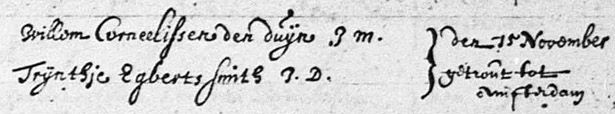 Willem Corneelissen den duijn J m.
Trijnthje Egberts smith J. D.
den 15 November
getrout tot
Amsterdam